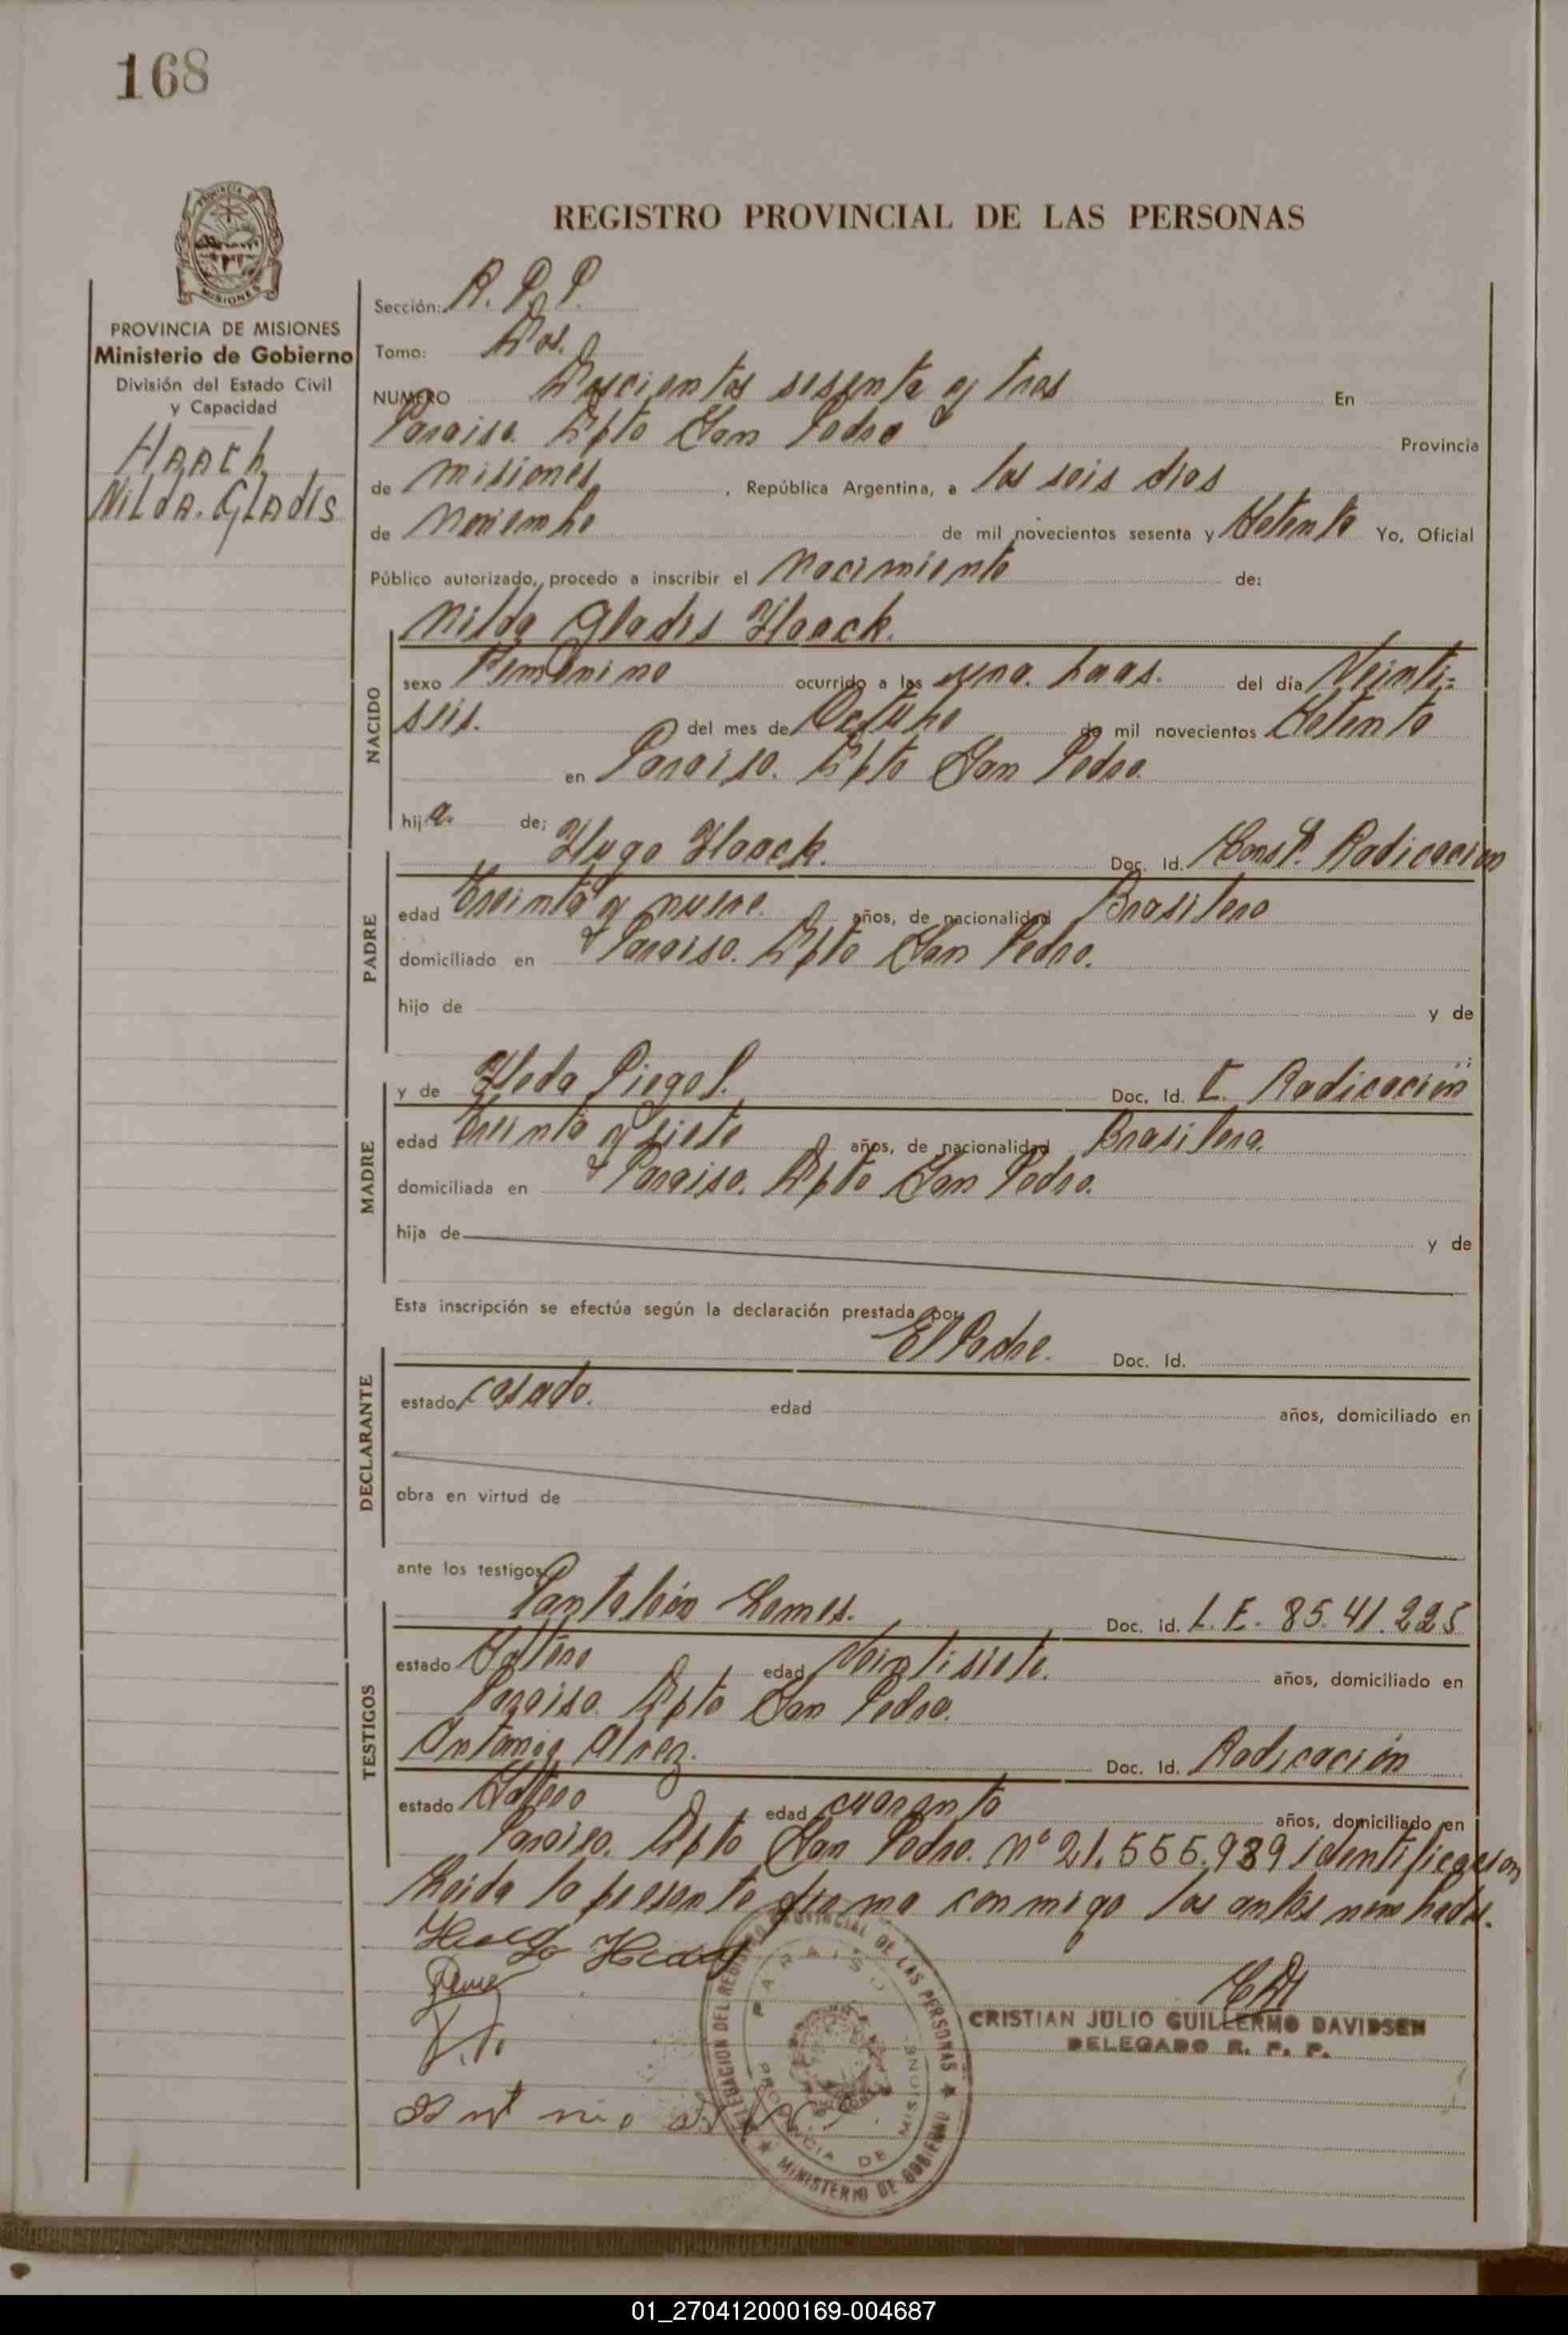 168
PROVINCIA DE MISIONES
Ministerio de Gobierno
División del Estado Civil
y Capacidad
HAACk
NiLdA. GLAdis
REGISTRO PROVINCIAL DE LAS PERSONAS
Sección: R. P. P.
Tomo: Dos.
NUMERO Doscientos sesenta y tres En
Paraiso. Dpto San Pedro Provincia
de misiones, República Argentina, a los seis dias
de Noviembre de mil novecientos sesenta y Setenta Yo, Oficial
Público autorizado, procedo a inscribir el Nacimiento de:
NACIDO
Nilda Gladis Haack.
sexo Femenino ocurrido a las una. horas. del día Veinti=
seis. del mes de Octubre de mil novecientos Setenta
en Paraiso. Dpto San Pedro.
hij a. de;
PADRE
Hugo Haack. Doc. Id. Const. Radicacion
edad treinta y nueve. años, de nacionalidad Brasilero
domiciliado en Paraiso. Dpto San Pedro.
hijo de y de
MADRE
y de Heda Piegel. Doc. Id. C. Radicación
edad treinta y siete años, de nacionalidad Brasilera.
domiciliada en Paraiso. Dpto San Pedro.
hija de y de
Esta inscripción se efectúa según la declaración prestada por
DECLARANTE
El Padre. Doc. Id.
estado casado. edad años, domiciliado en
obra en virtud de
ante los testigos
TESTIGOS
Pantaleón Lemes. Doc. id. L. E. 85.41.225
estado Soltero edad Veintisiete. años, domiciliado en
Paraiso. Dpto San Pedro.
Antonio Alvez. Doc. Id. Radicación
estado Soltero edad cuarenta años, domiciliado en
Paraiso. Dpto San Pedro. Nº 21.555.989 identificacion
Leida la presente firma conmigo los antes nombrados.
CRISTIAN JULIO GUILLERMO DAVIDSEN
DELEGADO R. P. P.
DELEGACION DEL REGISTRO PROVINCIAL DE LAS PERSONAS
MINISTERIO DE GOBIERNO
PARAISO
PROVINCIA DE MISIONES
01_270412000169-004687